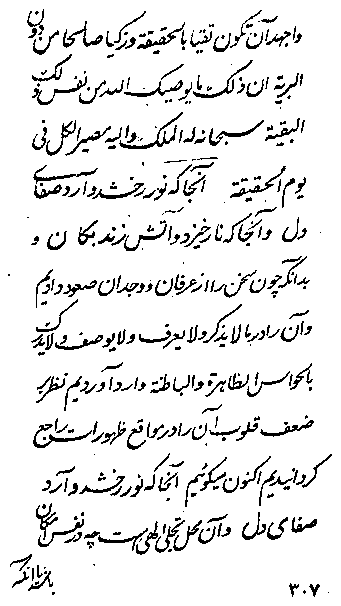 واجهد آن تکون تقیا بالحقیقة و زکیا صالحا من دون
البریة ان ذلک ما یوصیک الله من نفس ولکن
البقیة سبحانه له الملک والیه مصیر الکل فی
یوم الحقیقة آنجا که نور رخشد و آرد صفای
دل و آنجا که نار خیزد و آتش زند بمکان و
بدانکه چون سخن را از عرفان و وجدان صعود دادیم
وآن را در بالا یذکر ولا یعرف ولا یوصف ولا یدرک
بالحواس الظاهرة والباطنة وارد آوردیم نظر بر
ضعف قلوب آن را در مواقع ظهورات راجع
گردانیدیم اکنون میگوئیم آنجا که نور رخشد و آرد
صفای دل وآن محل تجلی الهی است چه در نفس امکان
با اینکه
۳۰۷